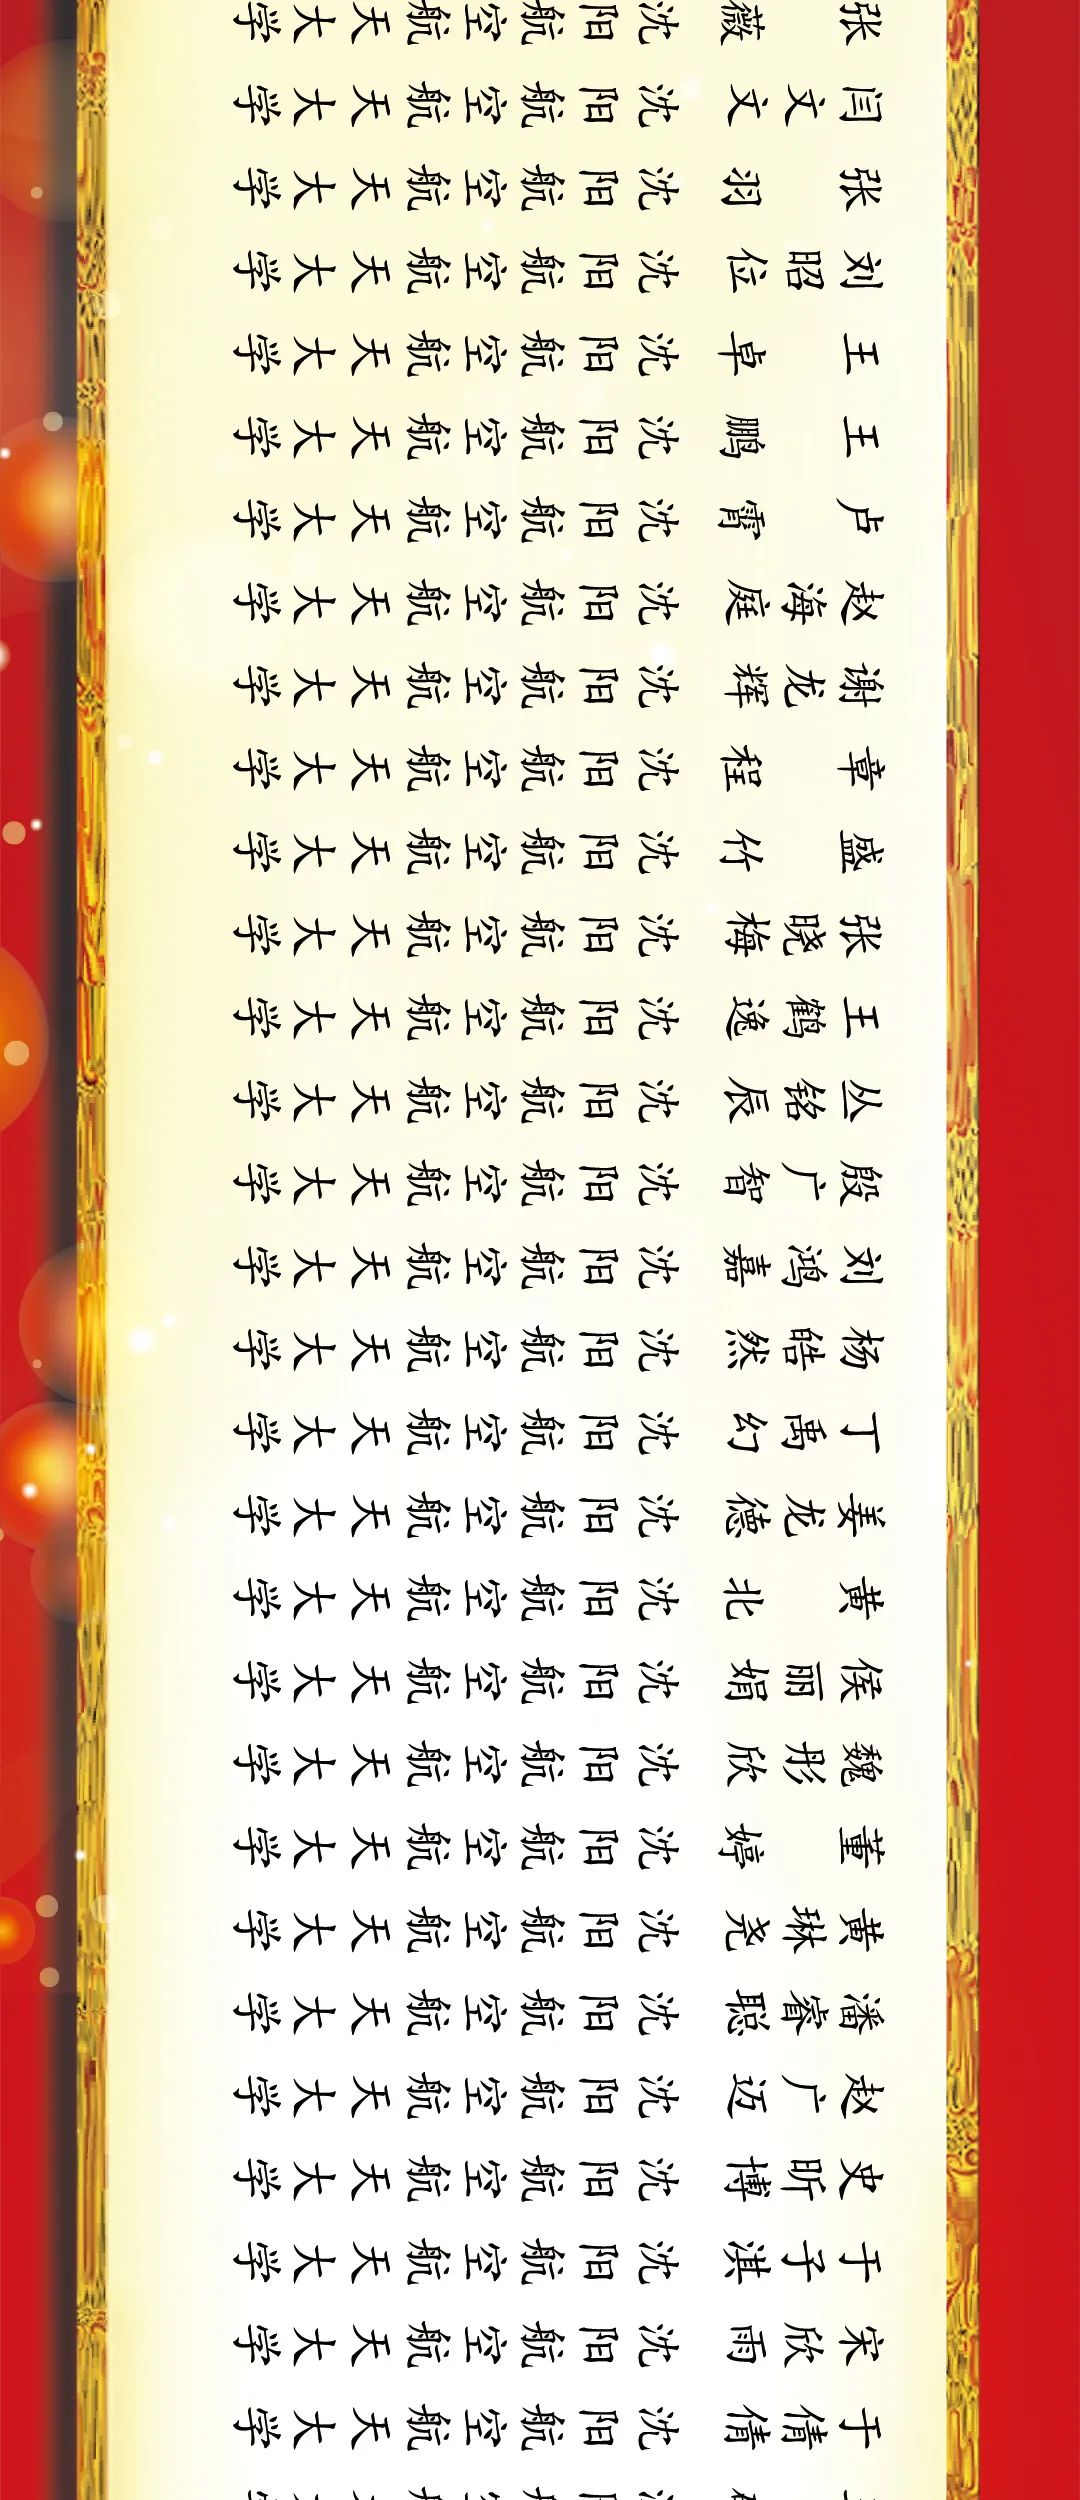 张薇 沈阳航空航天大学
闫文文 沈阳航空航天大学
张羽 沈阳航空航天大学
刘昭位 沈阳航空航天大学
王卓 沈阳航空航天大学
王鹏 沈阳航空航天大学
卢霄 沈阳航空航天大学
赵海庭 沈阳航空航天大学
谢龙辉 沈阳航空航天大学
章程 沈阳航空航天大学
盛竹 沈阳航空航天大学
张晓梅 沈阳航空航天大学
王鹤逸 沈阳航空航天大学
丛铭辰 沈阳航空航天大学
殷广智 沈阳航空航天大学
刘鸿嘉 沈阳航空航天大学
杨皓然 沈阳航空航天大学
丁禹幻 沈阳航空航天大学
姜龙德 沈阳航空航天大学
黄北 沈阳航空航天大学
侯丽娟 沈阳航空航天大学
魏彤欣 沈阳航空航天大学
董婷 沈阳航空航天大学
黄琳尧 沈阳航空航天大学
潘睿聪 沈阳航空航天大学
赵广迈 沈阳航空航天大学
史昕博 沈阳航空航天大学
于子淇 沈阳航空航天大学
宋欣雨 沈阳航空航天大学
于倩倩 沈阳航空航天大学